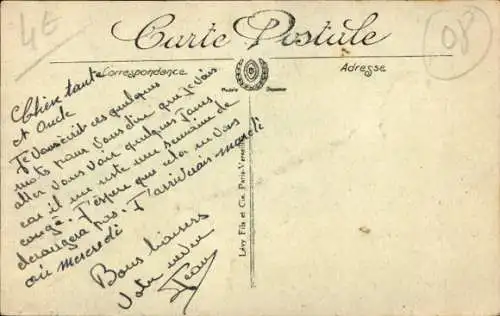 4E
Carte Postale
08
Correspondance
Adresse
Modèle Déposé
Chère tante
et oncle
Je vous écrit ces quelques
mots pour vous dire que je vais
aller vous voir quelques jours
car il me reste une semaine de
congé. J'espère que cela ne vous
derangera pas. J'arriverais mardi
ou mercredi
Bons baisers
Votre neveu
Jean
Lévy Fils et Cie, Paris-Versailles